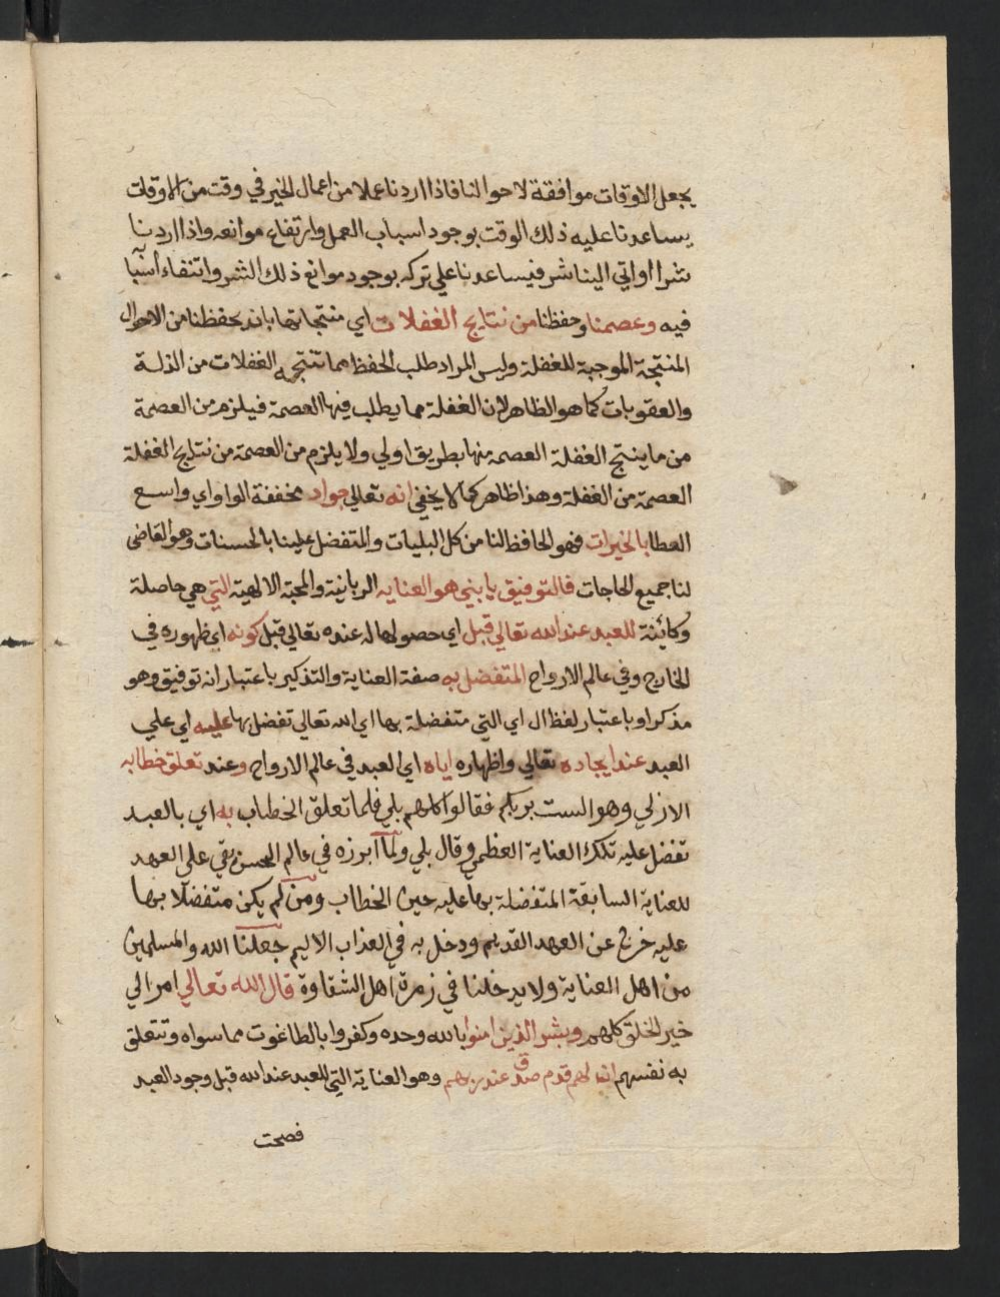 يجعل الاوقات موافقة لاحوالنا فاذا اردنا عملا من اعمال الخير في وقت من الاوقات
يساعدنا عليه ذلك الوقت بوجود اسباب العمل وارتفاع موانعه واذا اردنا
شرا او اتي الينا شر فيساعدنا علي تركه بوجود موانع ذلك الشر وانتفاء اسبا
فيه وعصمنا وحفظنا من نتايج الغفلات اي منتجاتها بانه يحفظنا من الاحوال
المنتجة الموجبة للغفلة وليس المراد طلب الحفظ مما تنتجه الغفلات من الذلة
والعقوبات كما هو الظاهر لان الغفلة مما يطلب فيها العصمة فيلزم من العصمة
من ما ينتج الغفلة العصمة منها بطريق اولي ولا يلزم من العصمة من نتايج الغفلة
العصمة من الغفلة وهذا ظاهر كما لا يخفي انه تعالي جواد مخففة الواو اي واسع
العطا بالخيرات فهو الحافظ لنا من كل البليات والمتفضل علينا بالحسنات وهو القاضي
لنا جميع الحاجات فالتوفيق يا بني هو العنايه الربانية والمحبة الالهية التي هي حاصلة
وكائنة للعبد عند الله تعالي قبل اي حصولها له عنده تعالي قبل كونه اي ظهوره في
الخارج وفي عالم الارواح المتفضل به صفة العناية والتذكير باعتبار انه توفيق وهو
مذكر او باعتبار لفظ ال اي التي متفضلة بها اي الله تعالي تفضل بها عليه اي علي
العبد عند ايجاده تعالي واظهاره اياه اي العبد في عالم الارواح وعند تعلق خطابه
الازلي وهو الست بربكم فقالوا كلهم بلي فلما تعلق الخطاب به اي بالعبد
تفضل عليه تلك العناية العظمي وقال بلي ولما ابرزه في عالم الحس بقي علي العهد
للعناية السابقة المتفضلة بها عليه حين الخطاب ومن لم يكن متفضلا بها
عليه خرج عن العهد القديم ودخل به في العذاب الاليم جعلنا الله والمسلمين
من اهل العناية ولا يدخلنا في زمرة اهل الشقاوة قال الله تعالي امرا لي
خير الخلق كلهم وبشر الذين امنوا بالله وحده وكفروا بالطاغوت مما سواه وتتعلق
به نفسهم ان لهم قدم صدق عند ربهم وهو العناية التي للعبد عند الله قبل وجود العبد
فصحت